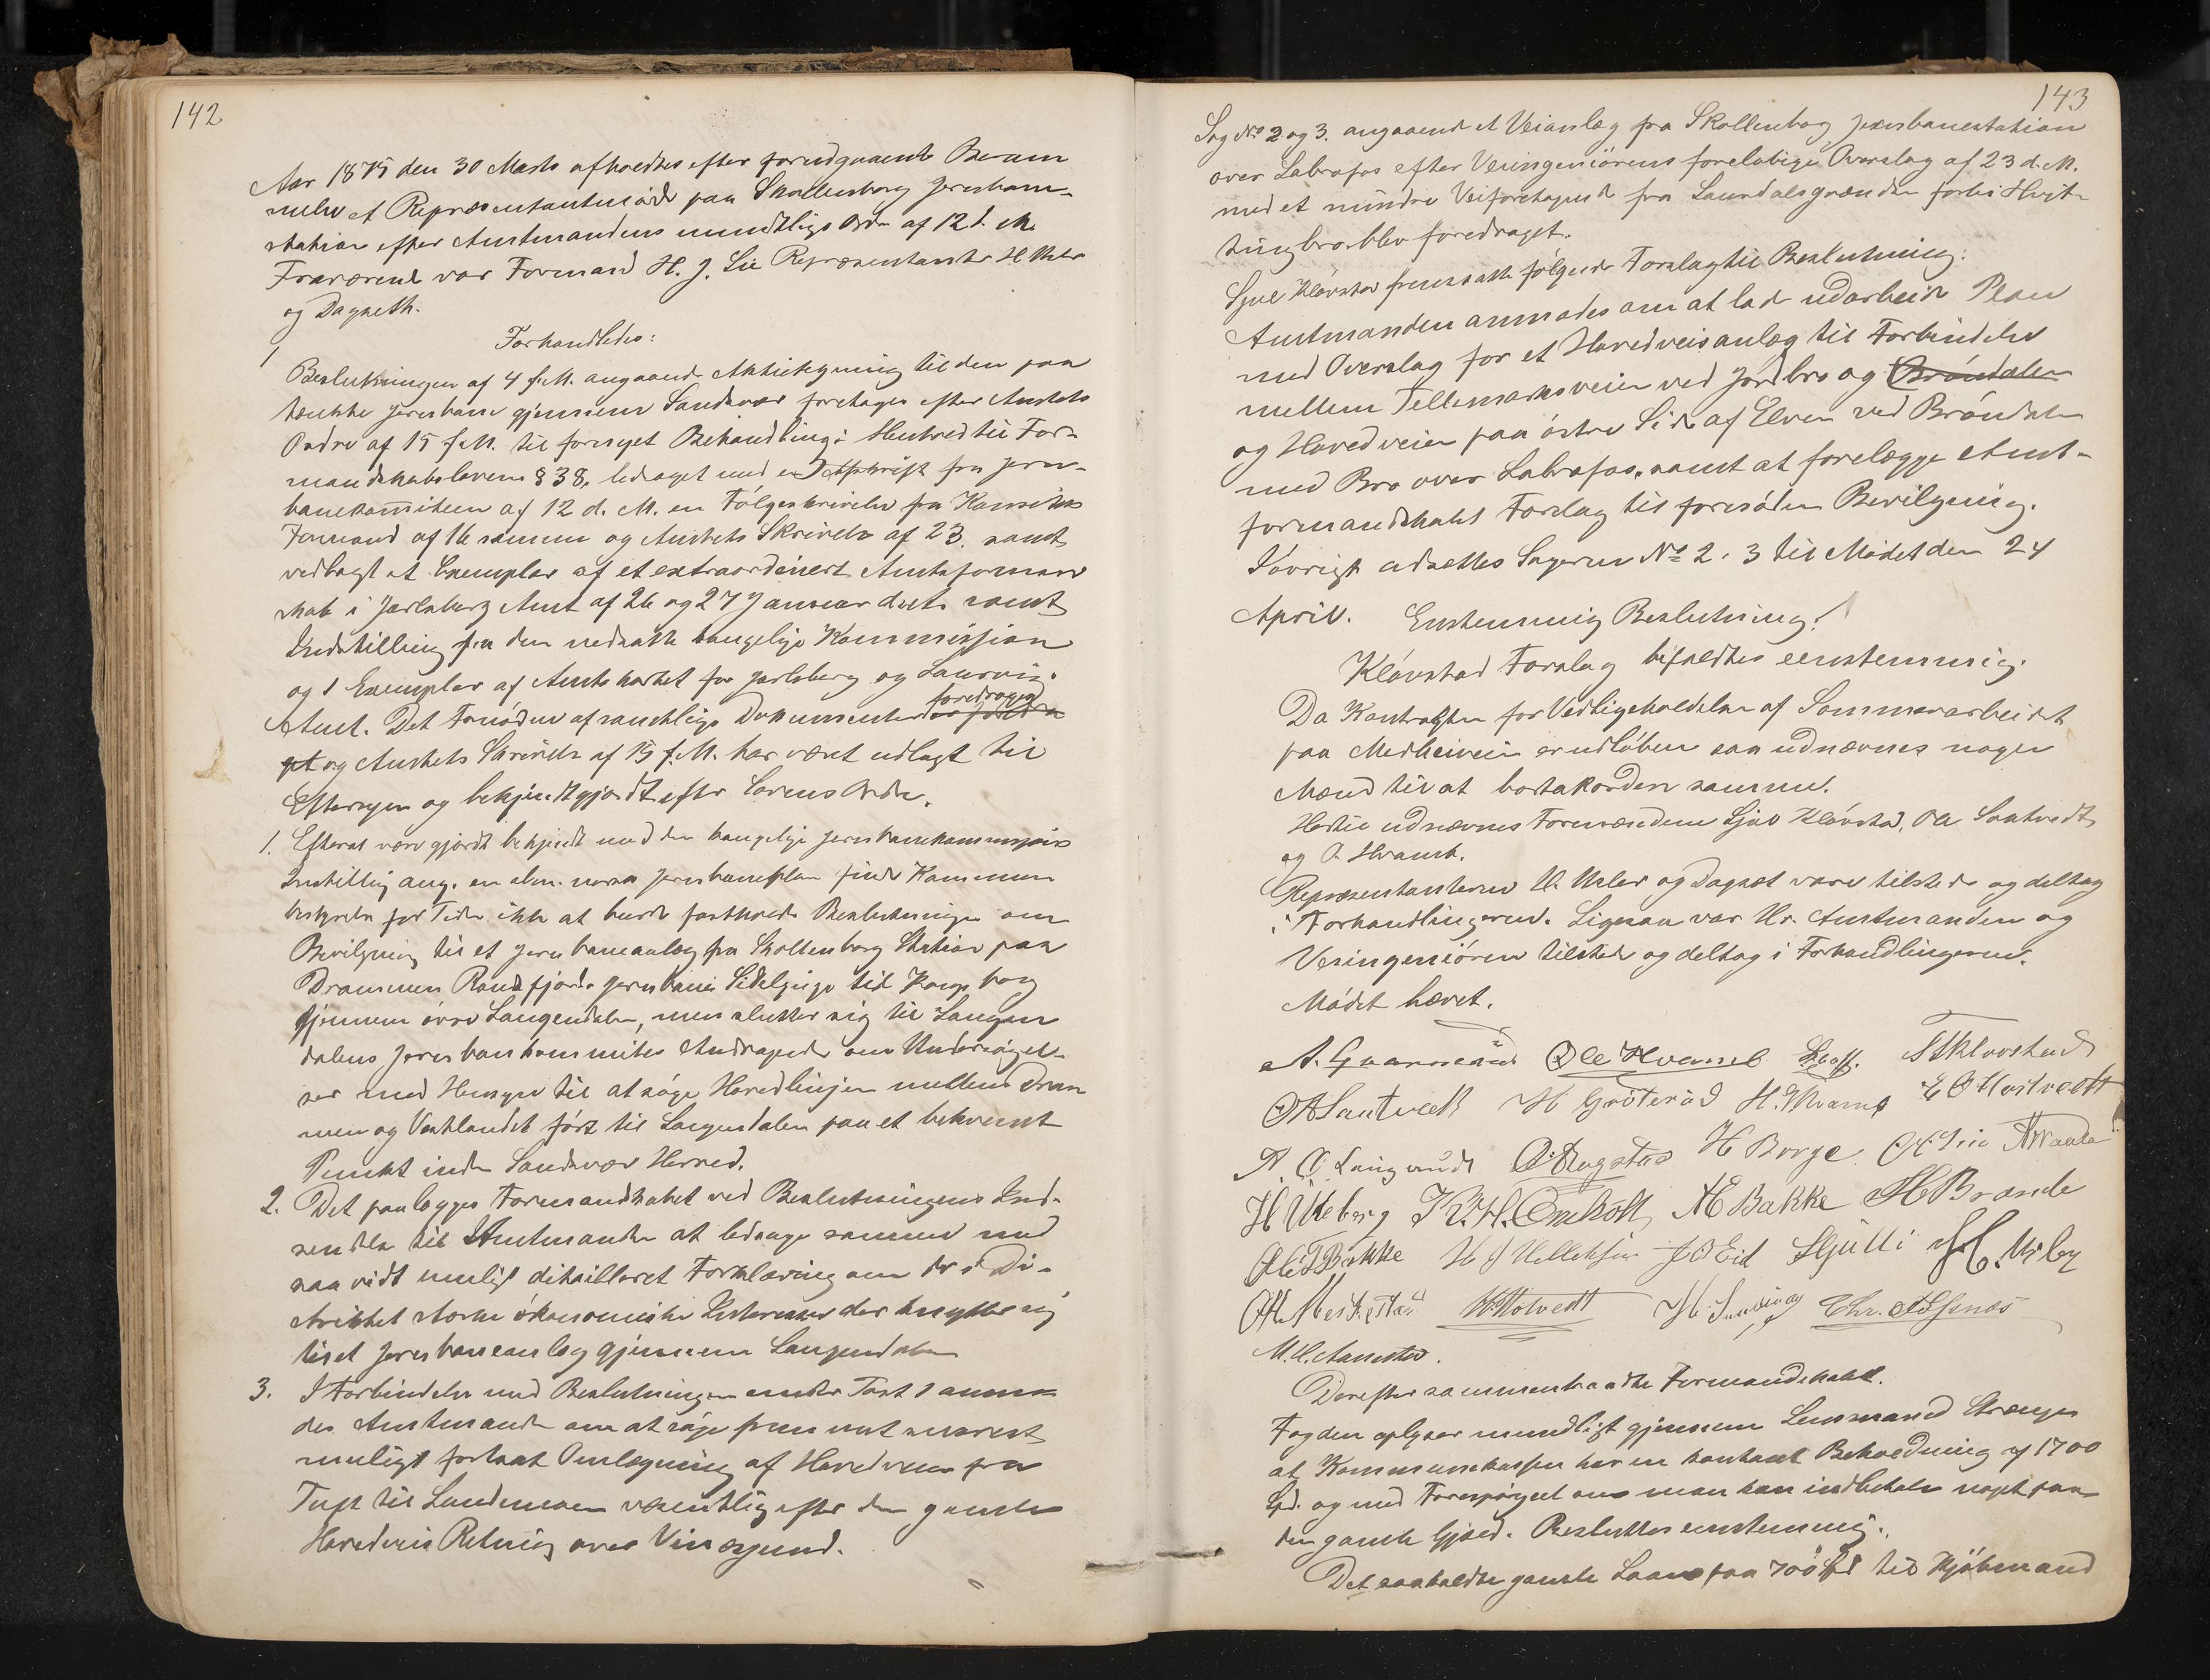 142
Aar 1875 den 30 Marts afholdtes efter forudgaaende Beram
melse et Repræsentantmøde paa Skollenborg Jernbane-
station efter Amtmandens mundtlige Ordre af 12 d. M.
Fraværende var Formand H. J. Lie Repræsentanter H Usler
og Dagseth.
Forhandledes:
1
Beslutningen af 4 f.M. angaaende Aktietegning til den paa
tænkte Jernbane gjennem Sandsvær foretages efter Amtets
Ordre af 15 f.M. til fornyet Behandling i Henhold til For-
mandskabslovens § 38, ledsaget med en Afskrift fra Jern-
banekomiteen af 12 d. M. en Følgeskrivelse fra Komitens
Formand af 16 samme og Amtets Skrivelse af 23. samt
vedlagt et Exemplar af et extraordinært Amtsforman
skab i Jarlsberg Amt af 26 og 27 Januar dets samt
Indstilling fra den nedsatte kongelige Kommission
og 1 Exemplar af Amtskartet for Jarlsberg og Laurvig
foredraget
Amt. Det Fornødne af samtlige Dokumenter er foredra
get og Amtets Skrivelse af 15 f.M. har været udlagt til
Eftersyn og bekjendtgjordt efter Lovens Orden.
1. Efterat være gjordt bekjendt med den kongelige Jernbanekommissions
Instilling ang. en alm. norsk Jernbaneplan finder Kommune
bestyrelsen for Tiden ikke at burde fastholde Beslutningen om
Bevilgning til et Jernbaneanlæg fra Skollenborg Station paa
Drammen Randsfjords Jernbanes Sidelinje til Kongsberg
gjennem øvre Laugendalen, men slutter sig til Laugen
dalens Jernbanekommites Andragende om Undersøgel-
ser med Hensyn til at søge Hovedlinjen mellem Dram
men og Vestlandet ført til Laugendalen paa et bekvemt
Punkt inden Sandsvær Herred.
2. Det paalægges Formandskabet ved Beslutningens Ind-
sendelse til Amtmanden at ledsage samme med
saavidt muligt detailleret Forklaring om de i Di-
striktet stærke økonomiske Interesser der knytter sig
til et Jernbaneanlæg gjennem Laugendalen
3. I Forbindelse med Beslutningen under Post 1 anmo
des Amtmanden om at søge frem mest snarest
muligt fortsat Omlægning af Hovedveien fra
Tuft til Landsmoen væsentlig efter den gamle
Hovedveis Retning over Vinæsjund.
143
Sag No 2 og 3. angaaende et Veianlæg fra Skollenborg Jernbanestation
over Labrofos efter Veiingeniørens foreløbige Overslag af 23 d. M.
med et mindre Veiforetagende fra Laurdalsgrænden forbi Hvit-
tingbro blev foredraget.
Sjul Kløvstad fremsatte følgende Forslag til Beslutning:
Amtmanden anmodes om at lade udarbeide Plan
med Overslag for et Hovedveisanlæg til Forbindelse
mellem Tellemarksveien ved Jordbro og Brøndalen
og Hovedveien paa østre Side af Elven ved Brøndalen
med Bro over Labrofos, samt at forelægge Amt-
formandskabet Forslag til fornøden Bevilgning.
Iøvrigt udsættes Sagerne No 2. 3 til Mødet den 24
April. Enstemmig Beslutning!
Kløvstad Forslag bifaldtes eenstemmig.
Da Kontrakten for Vedligeholdelsen af Sommerarbeidet
paa Medheiveien er udløben saa udnævnes nogen
Mænd til at bortakordere samme.
Hertil udnævnes Formændene Sjul Kløvstad, Ole Santvedt
og O. Hvamb.
Repræsentanterne H. Usler og Dagset vare tilstede og deltog
i Forhandlingerne. Ligesaa var Hr. Amtmanden og
Veiingeniøren tilstede og deltog i Forhandlingerne.
Mødet hævet.
Ole Hvamb
OA Santvedt H Grøterød H. Kvams
H Borge
H Uteberg AE Bakke HBrande
Ole Bakke J O Eid
Derefter sammentraadte Formandskabet.
Fogden oplyser mundligt gjennem Lensmand Strenge
at Kommunekassen har en kontant Beholdning af 1700
Spd. og med Forespørgsel om man kan indbetale noget paa
den gamle Gjæld. Besluttes enstemmig.
Det saakaldte gamle Laan paa 700 Spd til Kjøbmand